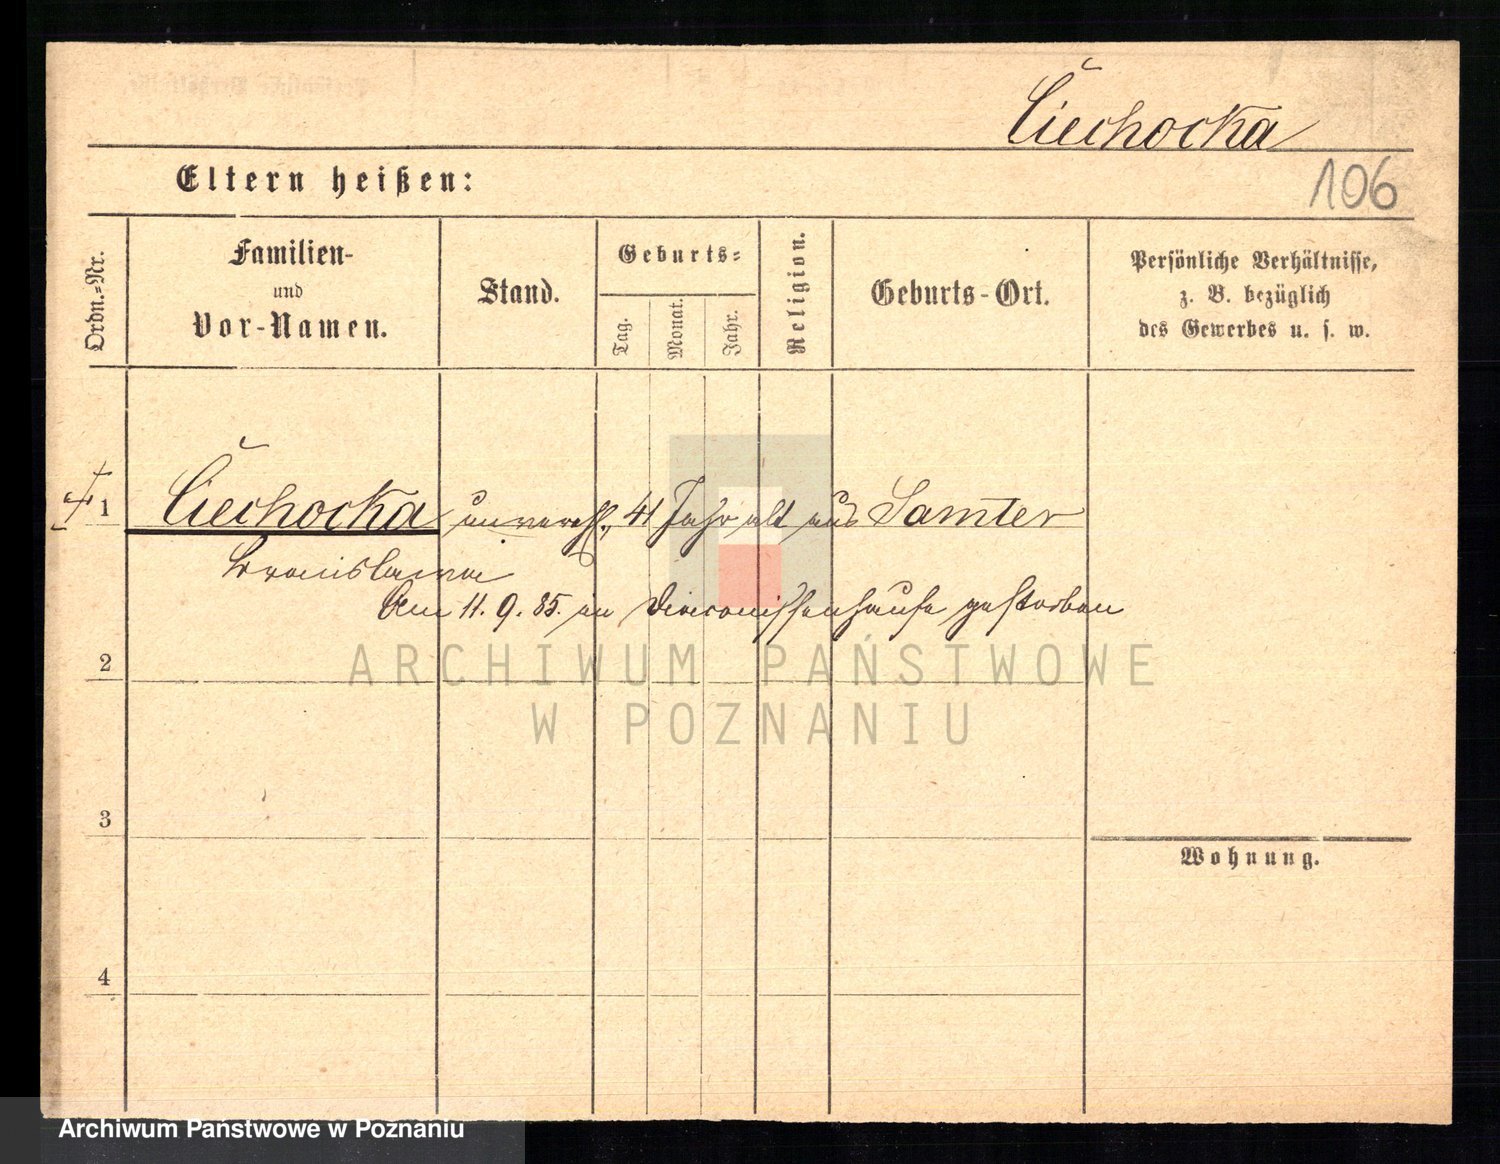 Ciechocka
Eltern heißen:
106
Ordn.-Nr.
Familien-
und
Vor-Namen.
Stand.
Geburts-
Tag.
Monat.
Jahr.
Religion.
Geburts-Ort.
Persönliche Verhältnisse,
z. B. bezüglich
des Gewerbes u. s. w.
1 Ciechocka unvereh., 41 Jahr alt aus Samter
Bronislawa
Am 11. 9. 85. im Diaconissenhause gestorben
ARCHIWUM PAŃSTWOWE
2
W POZNANIU
3
Wohnung.
4
Archiwum Państwowe w Poznaniu